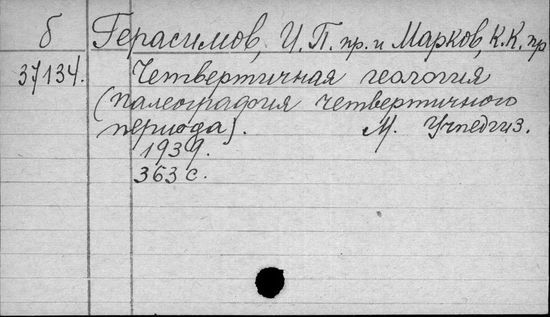 б Герасимов, И. П. пр. и Марков, К. К. пр
37134. Четвертичная геология
(палеография четвертичного
периода). М. Учпедгиз.
1939.
363 с.